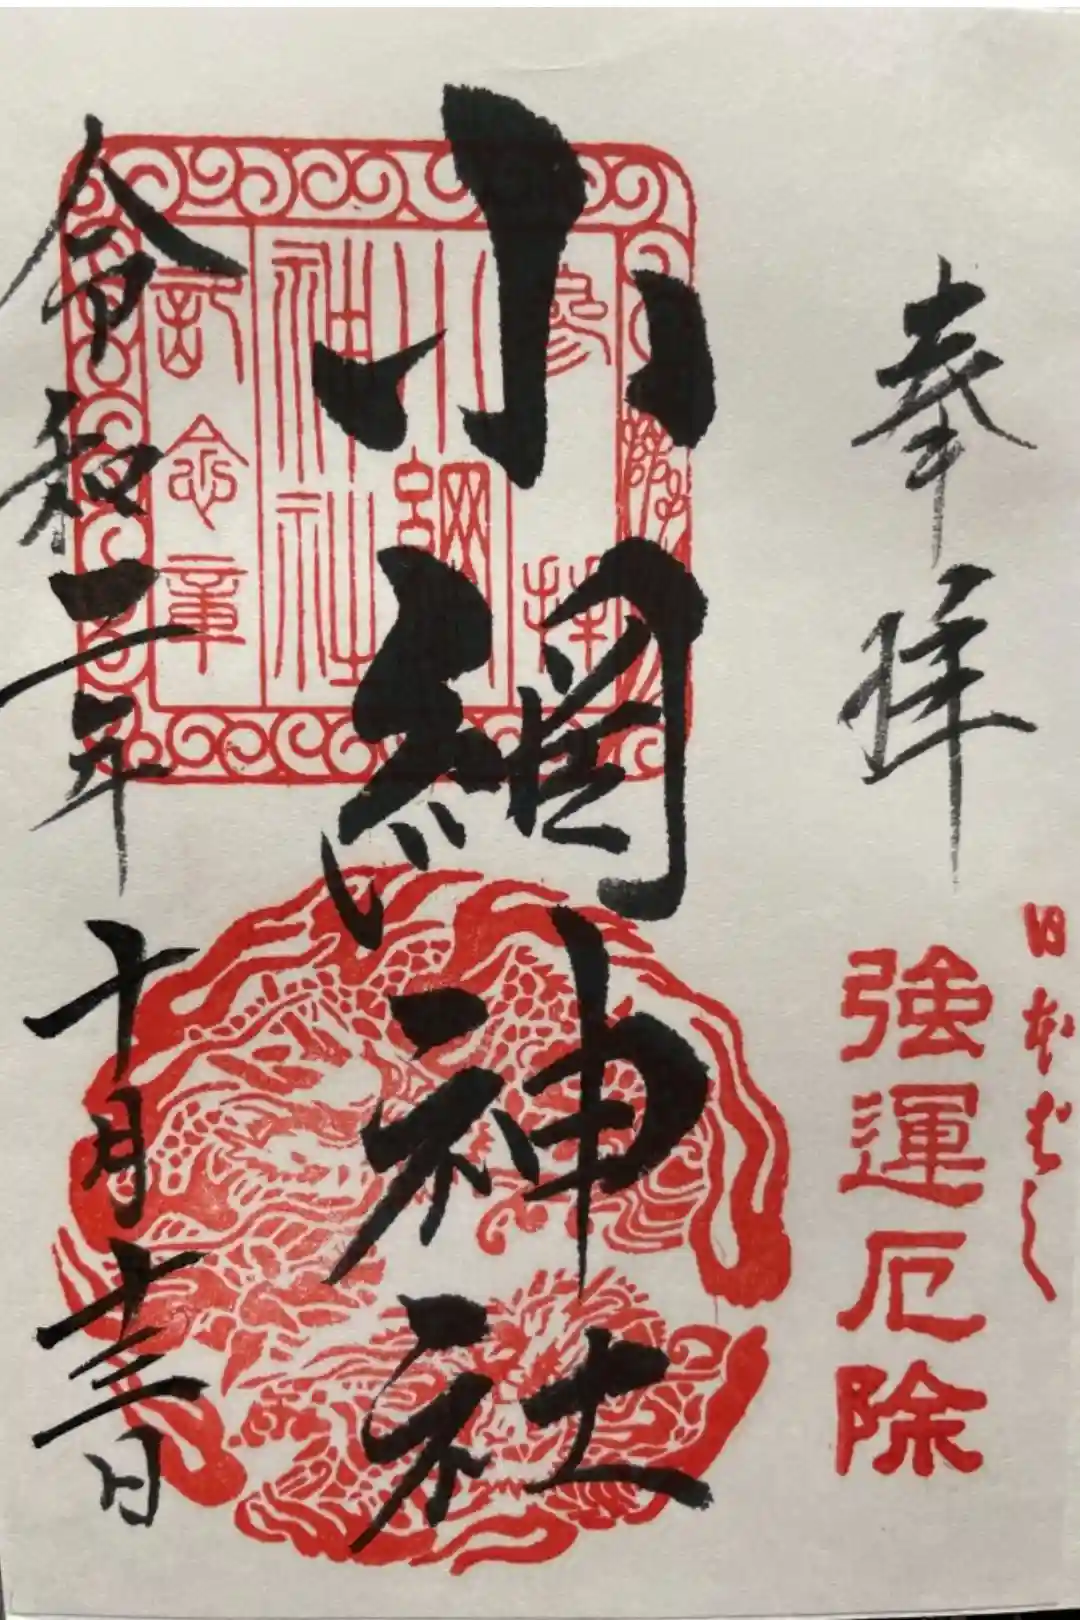 奉拝
日本ばし
強運厄除
小網神社
参拝
小網神社
記念章
令和二年十月十三日